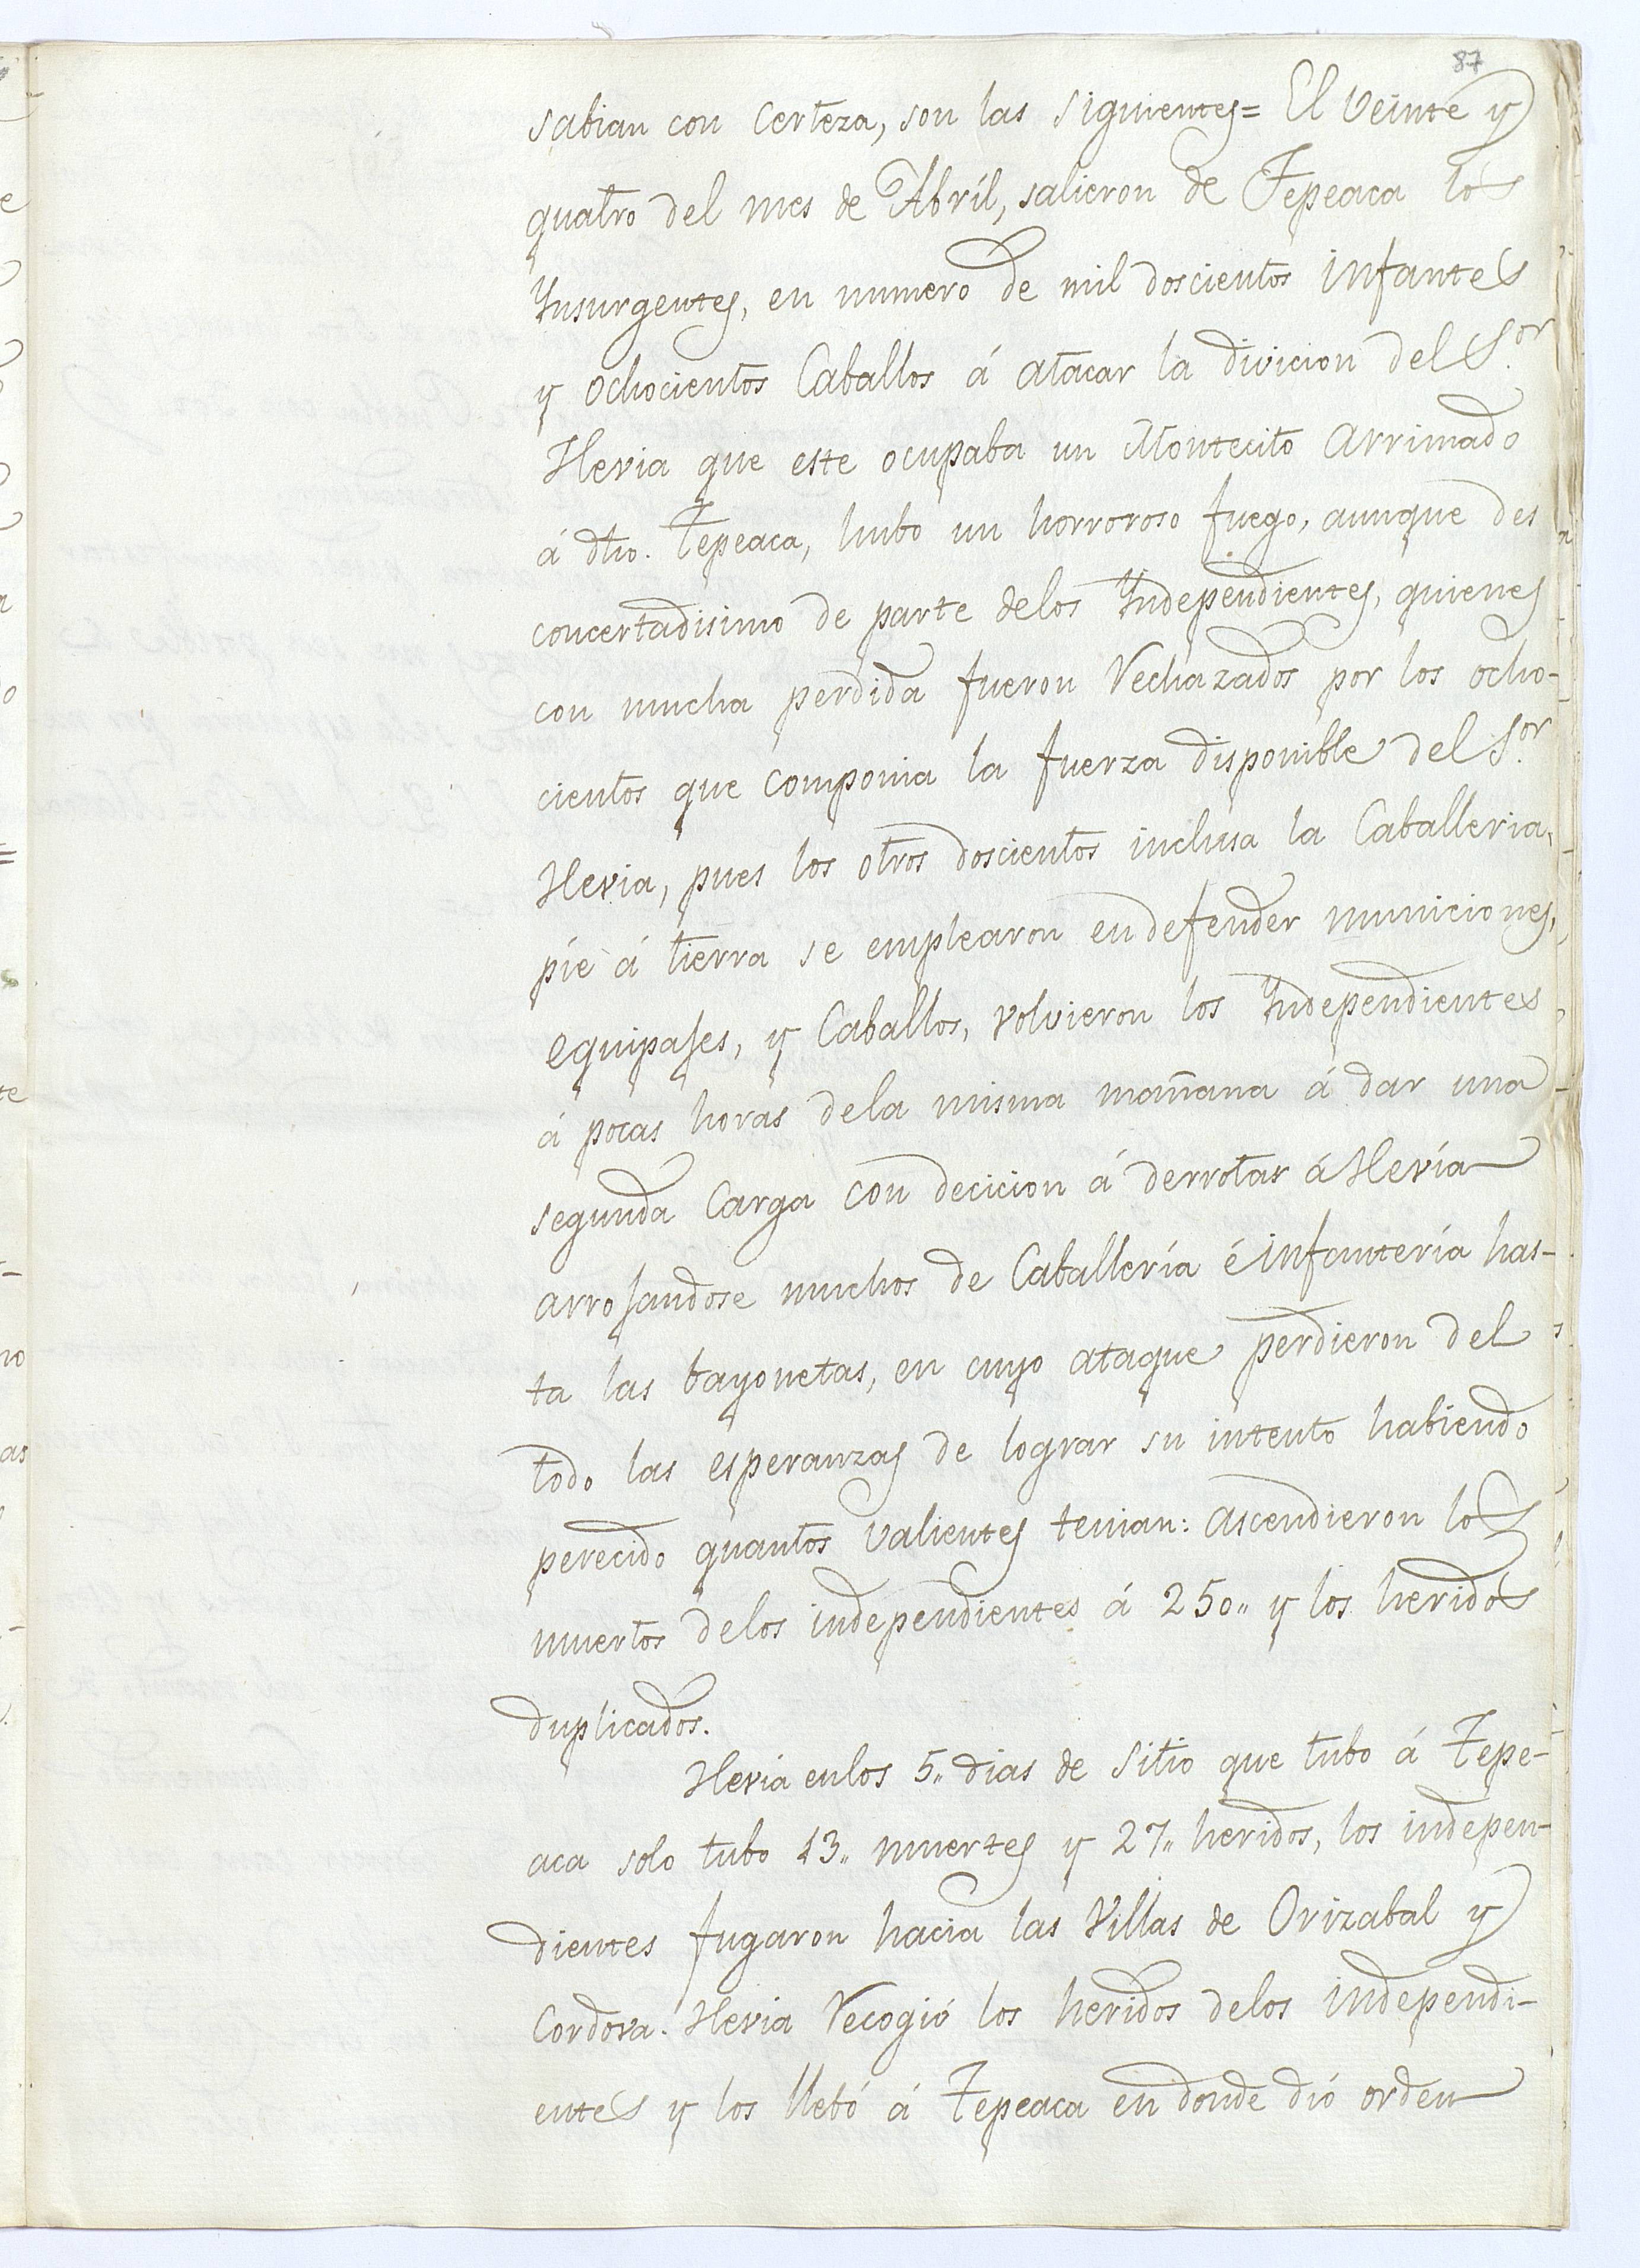 87
sabian con certeza, son las siguientes= El veinte y
quatro del mes de Abríl, salieron de Tepeaca los
Ynsurgentes, en numero de mil doscientos infantes
y ochocientos Caballos á atacar la divicion del S.or
Hevia que este ocupaba un Montecito arrimado
á dho. Tepeaca, hubo un horroroso fuego, aunque des
concertadisimo de parte delos Yndependientes, quienes
con mucha perdida fueron rechazados por los ocho-
cientos que componia la fuerza disponible del S.or
Hevia, pues los otros doscientos inclusa la Caballeria,
píe á tierra se emplearon en defender municiones,
equipajes, y Caballos, volvieron los Yndependientes
á pocas horas dela misma mañana á dar una
segunda Carga con decicion á derrotar á Hevía
arrojandose muchos de Caballería é infantería has-
ta las bayonetas, en cuyo ataque perdieron del
todo las esperanzas de lograr su intento habiendo
perecido quantos valientes tenian: ascendieron los
muertos delos independientes á 250,, y los heridos
duplicados.
Hevia enlos 5,, dias de sitio que tubo á Tepe-
aca solo tubo 13,, muertes y 27,, heridos, los indepen-
dientes fugaron hacia las Villas de Orizabal y
Cordova. Hevia recogió los heridos delos independi-
entes y los llebó á Tepeaca en donde dió orden